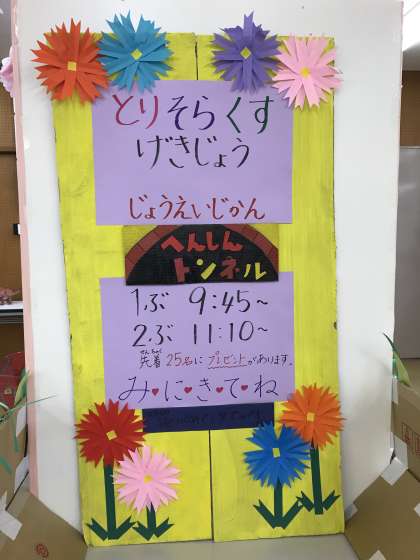 とりそらくす
げきじょう
じょうえいじかん
へんしん
トンネル
1ぶ 9:45~
2ぶ 11:10~
せんちゃく
先着25名にプレゼントがあります。
み♥に♥き♥て♥ね